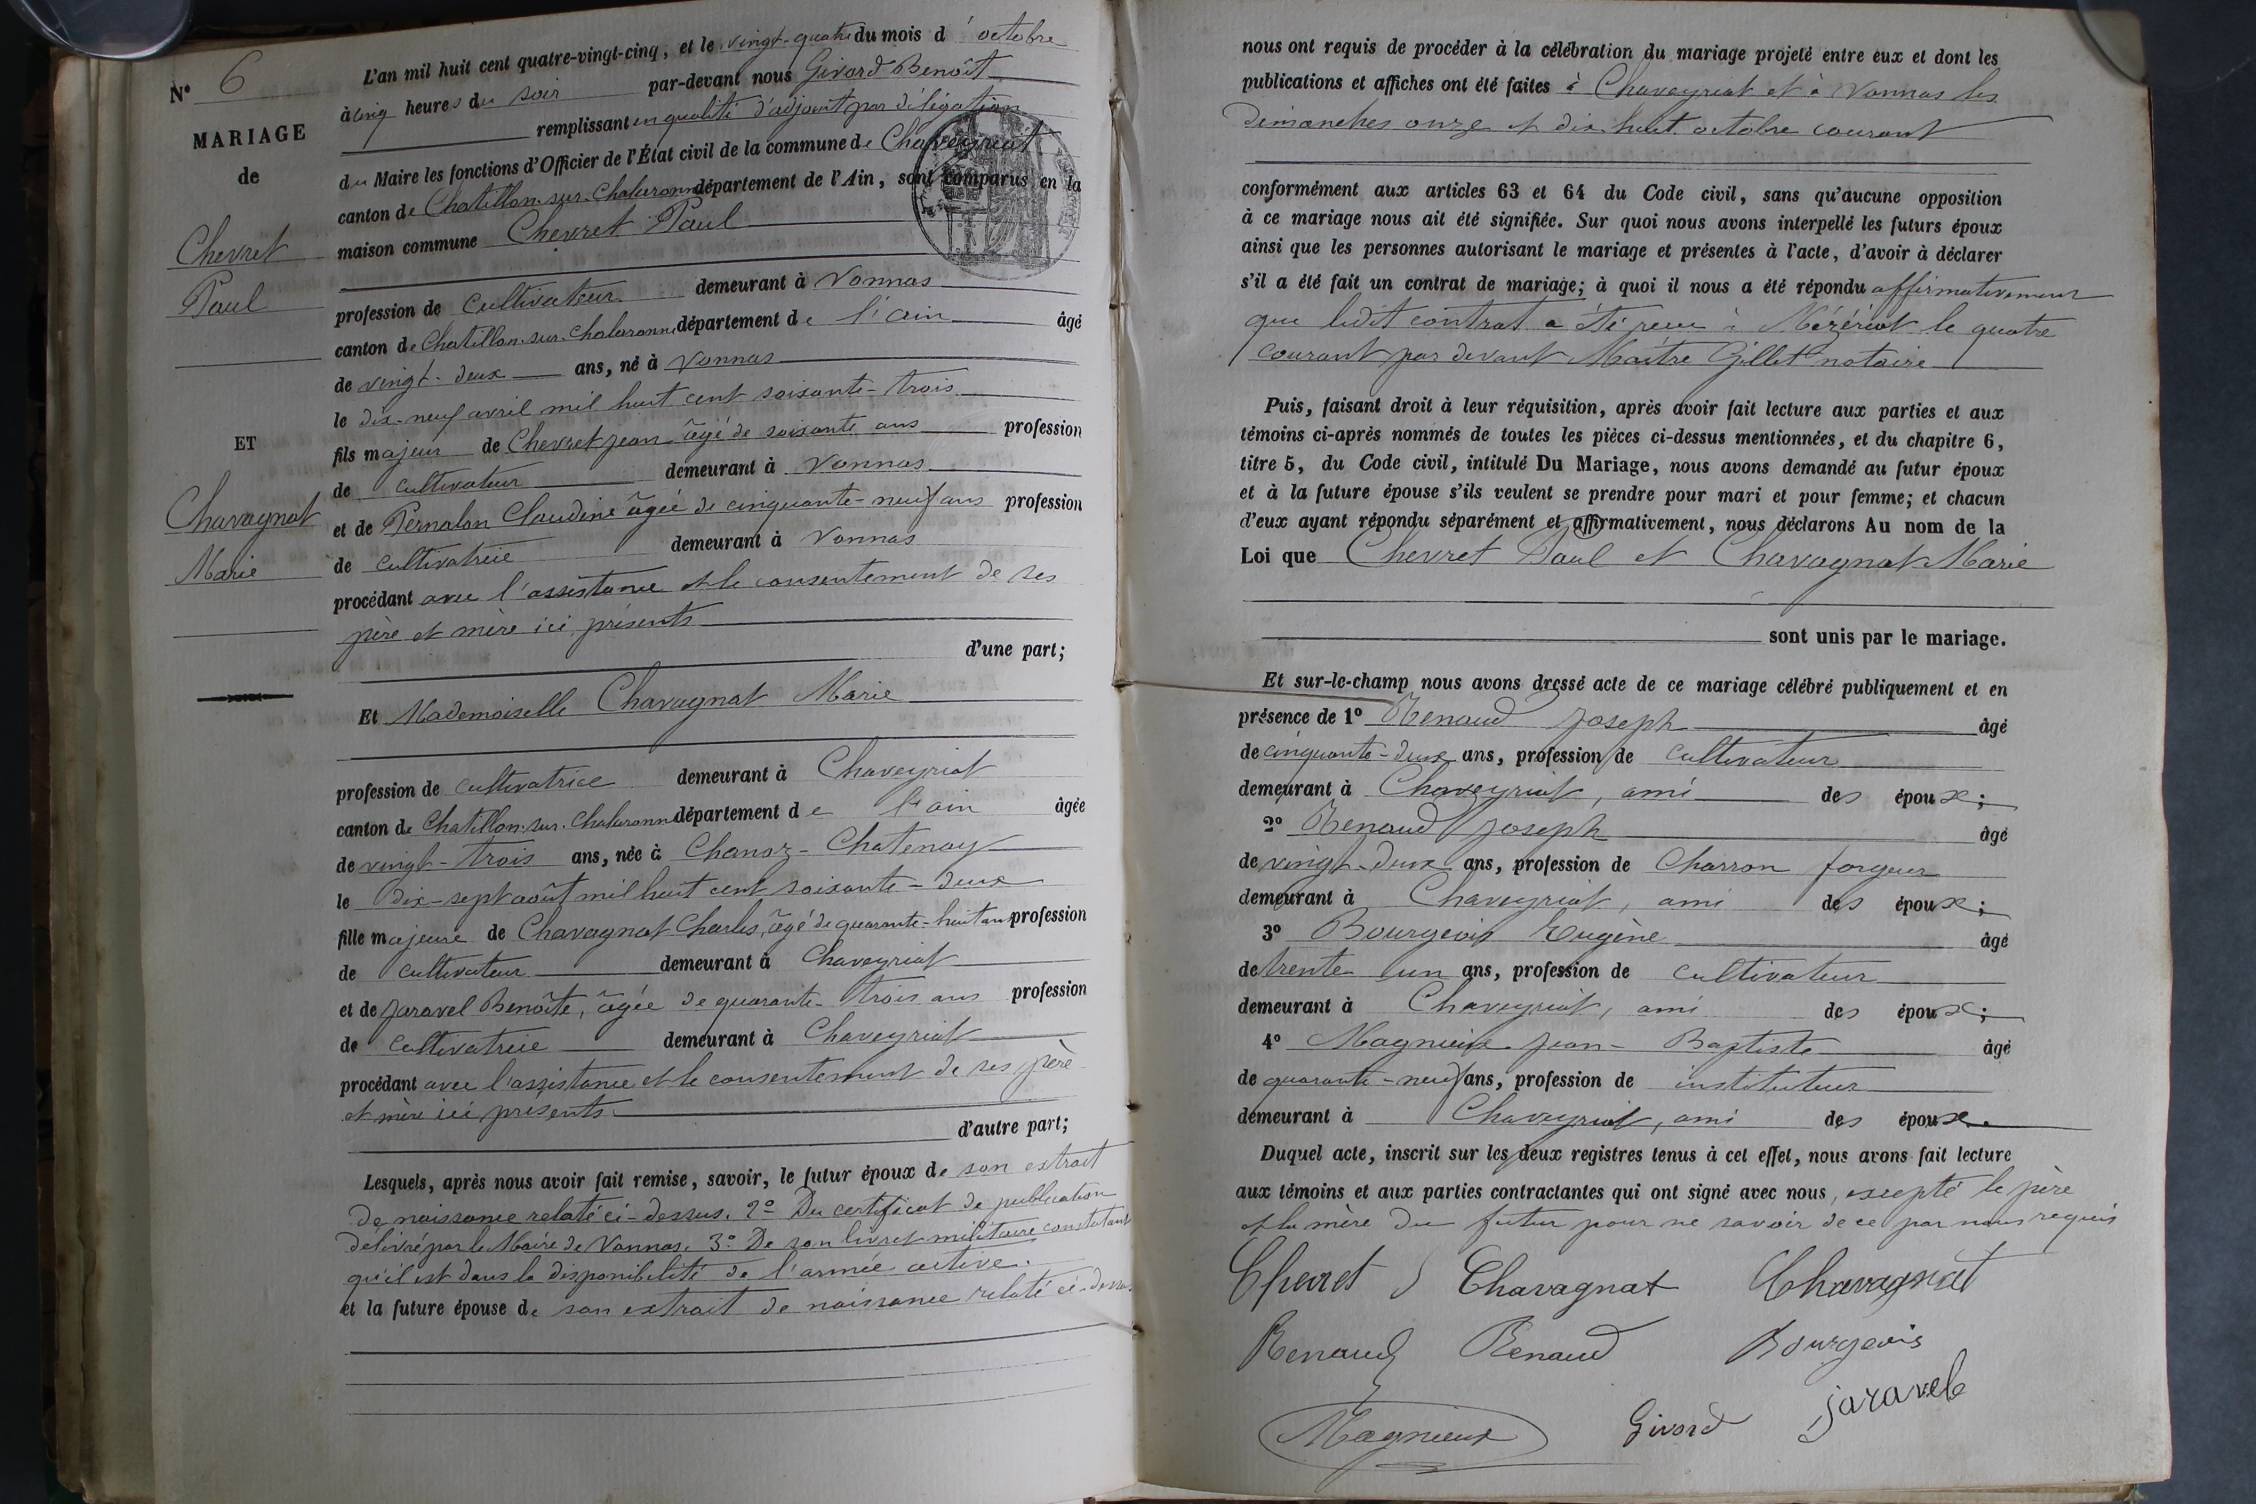 N° 6
MARIAGE
de
Chevret
Paul
ET
Chavagnat
Marie
L'an mil huit cent quatre-vingt-cinq, et le vingt-quatre du mois d'octobre
à cinq heures du soir par-devant nous Givord Benoît
remplissant en qualité d'adjoint par délégation
du Maire les fonctions d'Officier de l'État civil de la commune de Chaveyriat
canton de Chatillon-sur-Chalaronne département de l'Ain, sont comparus en la
maison commune Chevret Paul
profession de cultivateur demeurant à Vonnas
canton de Chatillon-sur-Chalaronne département de l'ain âgé
de vingt-deux ans, né à Vonnas
le dix-neuf avril mil huit cent soixante-trois
fils majeur de Chevret Jean âgé de soixante ans profession
de cultivateur demeurant à Vonnas
et de Pernalon Claudine âgée de cinquante-neuf ans profession
de cultivatrice demeurant à Vonnas
procédant avec l'assistance et le consentement de ses
père et mère ici présents
d'une part;
Et Mademoiselle Chavagnat Marie
profession de cultivatrice demeurant à Chaveyriat
canton de Chatillon-sur-Chalaronne département de l'ain âgée
de vingt-trois ans, née à Chanoz-Chatenay
le dix-sept août mil huit cent soixante-deux
fille majeure de Chavagnat Charles, âgé de quarante-huit ans profession
de cultivateur demeurant à Chaveyriat
et de Jaravel Benoîte, âgée de quarante-trois ans profession
de cultivatrice demeurant à Chaveyriat
procédant avec l'assistance et le consentement de ses père
et mère ici présents
d'autre part;
Lesquels, après nous avoir fait remise, savoir, le futur époux de son extrait
de naissance relaté ci-dessus. 2° Du certificat de publication
délivré par le Maire de Vonnas. 3° De son livret militaire constatant
qu'il est dans la disponibilité de l'armée active.
et la future épouse de son extrait de naissance relaté ci-dessus
nous ont requis de procéder à la célébration du mariage projeté entre eux et dont les
publications et affiches ont été faites à Chaveyriat et à Vonnas les
Dimanches onze et dix-huit octobre courant
conformément aux articles 63 et 64 du Code civil, sans qu'aucune opposition
à ce mariage nous ait été signifiée. Sur quoi nous avons interpellé les futurs époux
ainsi que les personnes autorisant le mariage et présentes à l'acte, d'avoir à déclarer
s'il a été fait un contrat de mariage; à quoi il nous a été répondu affirmativement
que ledit contrat a été reçu à Mézériat le quatre
courant par devant Maître Gillet notaire
Puis, faisant droit à leur réquisition, après avoir fait lecture aux parties et aux
témoins ci-après nommés de toutes les pièces ci-dessus mentionnées, et du chapitre 6,
titre 5, du Code civil, intitulé Du Mariage, nous avons demandé au futur époux
et à la future épouse s'ils veulent se prendre pour mari et pour femme; et chacun
d'eux ayant répondu séparément et affirmativement, nous déclarons Au nom de la
Loi que Chevret Paul et Chavagnat Marie
sont unis par le mariage.
Et sur-le-champ nous avons dressé acte de ce mariage célébré publiquement et en
présence de 1° Renaud Joseph âgé
de cinquante-deux ans, profession de cultivateur
demeurant à Chaveyriat, ami des époux;
2° Renaud Joseph âgé
de vingt-deux ans, profession de Charron forgeur
demeurant à Chaveyriat, ami des époux;
3° Bourgeois Eugène âgé
de trente un ans, profession de cultivateur
demeurant à Chaveyriat, ami des époux;
4° Magnieux Jean-Baptiste âgé
de quarante-neuf ans, profession de instituteur
demeurant à Chaveyriat, ami des époux.
Duquel acte, inscrit sur les deux registres tenus à cet effet, nous avons fait lecture
aux témoins et aux parties contractantes qui ont signé avec nous, excepté le père
et la mère du futur pour ne savoir de ce par nous requis
Chevret Chavagnat Chavagnat
Renaud Renaud Bourgeois
Magnieux Givord jaravel